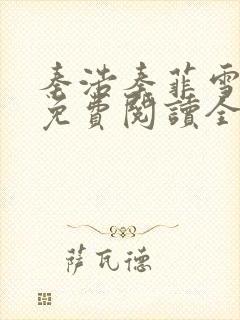 秦浩秦菲雪
免費閱讀全
萨瓦德